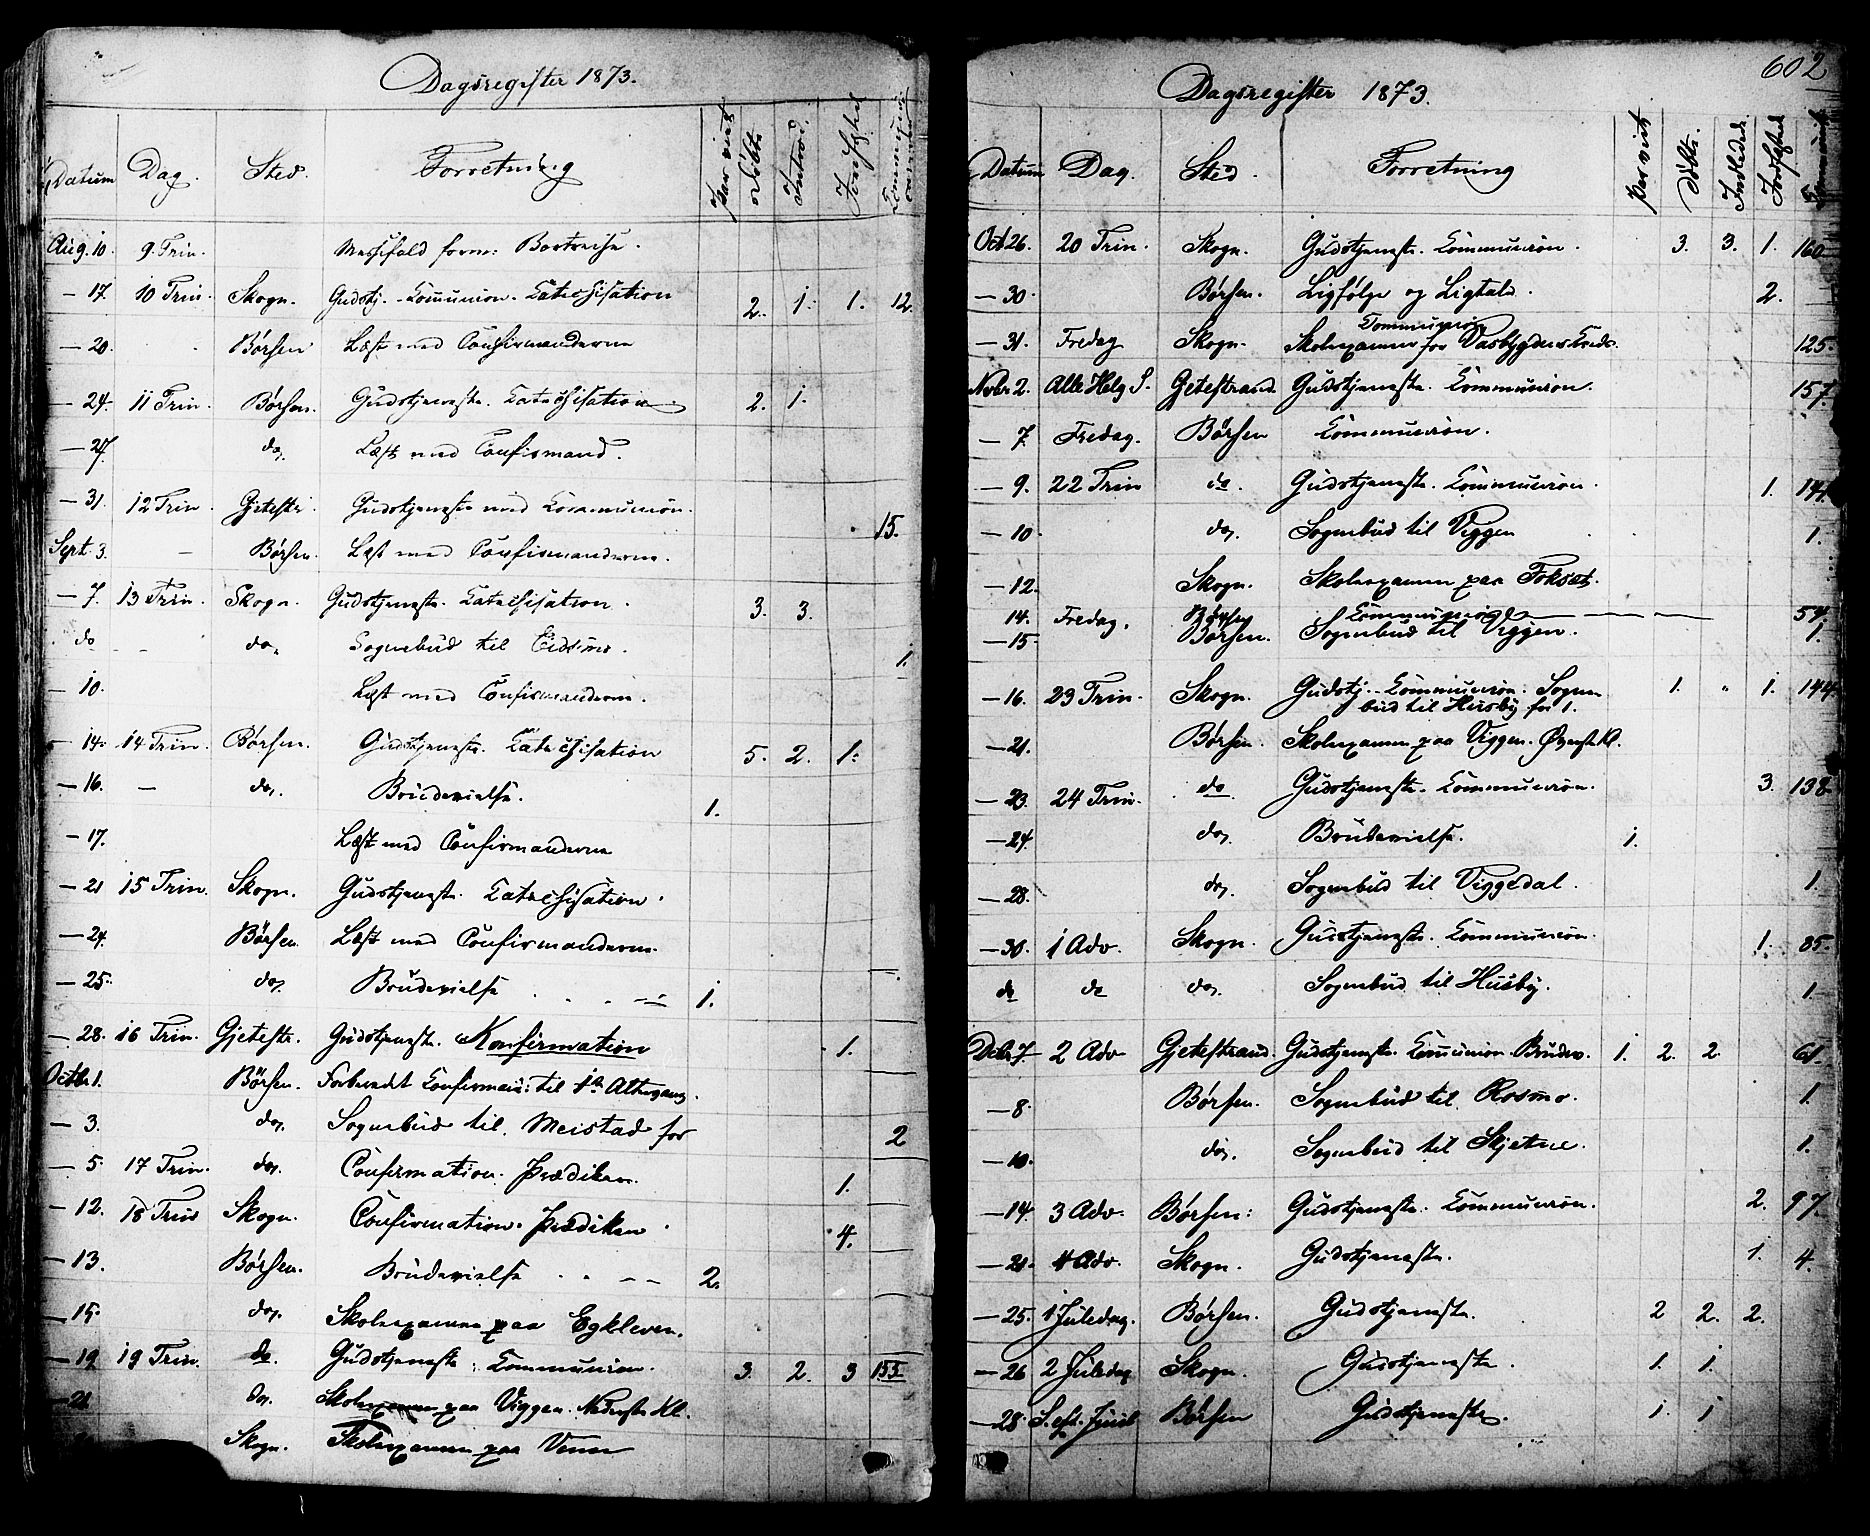 Dagsregister 1873.
Datum Dag. Sted. Forretning Par viet Døbte Introd. Jordfæstet
Aug. 10. 9. Trin. Messefald form:
— 17. 10 Trin. Skogn. Gudstj. - Communion. Catechisation 2. 1. 1. 12.
— 20. Børsen Læst med Confirmanderne
— 24. 11 Trin. Børsen. Gudstjeneste. Catechisation. 2. 1.
— 27. do. Læst med Confirmand.
— 31. 12 Trin Gjetestr. Gudstjeneste med Communion. 15.
Sept 3. — Børsen. Læst med Confirmanderne.
— 7. 13 Trin. Skogn. Gudstjeneste. Catechisation. 3. 3.
do do. Sognebud til 1.
— 10. Læst med Confirmanderne.
— 14. 14 Trin. Børsen. Gudstjeneste. Catechisation 5. 2. 1.
— 16. — do. Brudevielse. 1.
— 17. Læst med Confirmanderne
— 21 15 Trin. Skogn. Gudstjeneste. Catechisation.
— 24. Børsen. Læst med Confirmanderne.
— 25. do. Brudevielse 1.
— 28. 16 Trin. Gjetestr. Gudstjeneste. Konfirmation 1.
Octbr 1. Børsen. Forberedt Confirman: til 1ste Altergang.
— 3. do. Sognebud til Meistad for 2
— 5. 17 Trin. do. Confirmation. Prædiken. 1.
— 12. 18 Trin Skogn. Confirmation. Prædiken. 4.
— 13. Børsen. Brudevielse 2.
— 15. do. Skoleexamen paa Egkleven.
— 19 19 Trin. do. Gudstjeneste. Communion. 3. 2. 3 155.
— 21 do. Skoleexamen paa Viggen. Nederste Kl.
Skogn. Skoleexamen paa
602
Dagsregister 1873.
Datum Dag. Sted. Forretning Par viet Døbte. Indledede Jordfæstede
Oct. 26. 20 Trin. Skogn. Gudstjeneste. Communion. 3. 3. 1. 160
— 30. Børsen. Ligfølge og Ligtale. 2.
Communion
— 31. Fredag Skogn. Skoleexamen for 125.
Novbr 2. Alle Helg S. Gjetestrand Gudstjeneste. Communion. 157.
— 7. Fredag. Børsen Communion.
— 9. 22 Trin do. Gudstjeneste. Communion. 1. 144
— 10. do. Sognebud til Viggen 1.
— 12. Skogn. Skoleexamen paa
14. Fredag. Børsen Communion 54.
— 15. Børsen. Sognebud til Viggen. 1.
— 16. 23 Trin. Skogn. Gudstj. - Communion. Sogne 1. " 1. 144
bud til Husby for 1.
— 21. Børsen. Skoleexamen paa Viggen. Øverste Kl.
— 23. 24 Trin. do Gudstjeneste. Communion. 3. 138
— 24. do. Brudevielse. 1.
— 28. do. Sognebud til Viggedal. 1
— 30. 1 Adv. Skogn. Gudstjeneste. Communion. 1. 85.
do do do. Sognebud til Husby. 1
Decbr 7 2 Adv Gjetestrand. Gudstjeneste. Communion. Brudev. 1. 2. 2. 61.
— 8. Børsen. Sognebud til Rosmo. 1.
— 10. do. Sognebud til Skjetne. 1.
— 14. 3 Adv. Børsen: Gudstjeneste. Communion. 2. 97.
— 21. 4 Adv. Skogn. Gudstjeneste. 1. 4.
— 25. 1 Juledag. Børsen. Gudstjeneste. 2 2. 2.
— 26 2 Juledag Skogn. Gudstjeneste. 1. 1.
— 28. S. eft. Juul Børsen Gudstjeneste. 1. 1